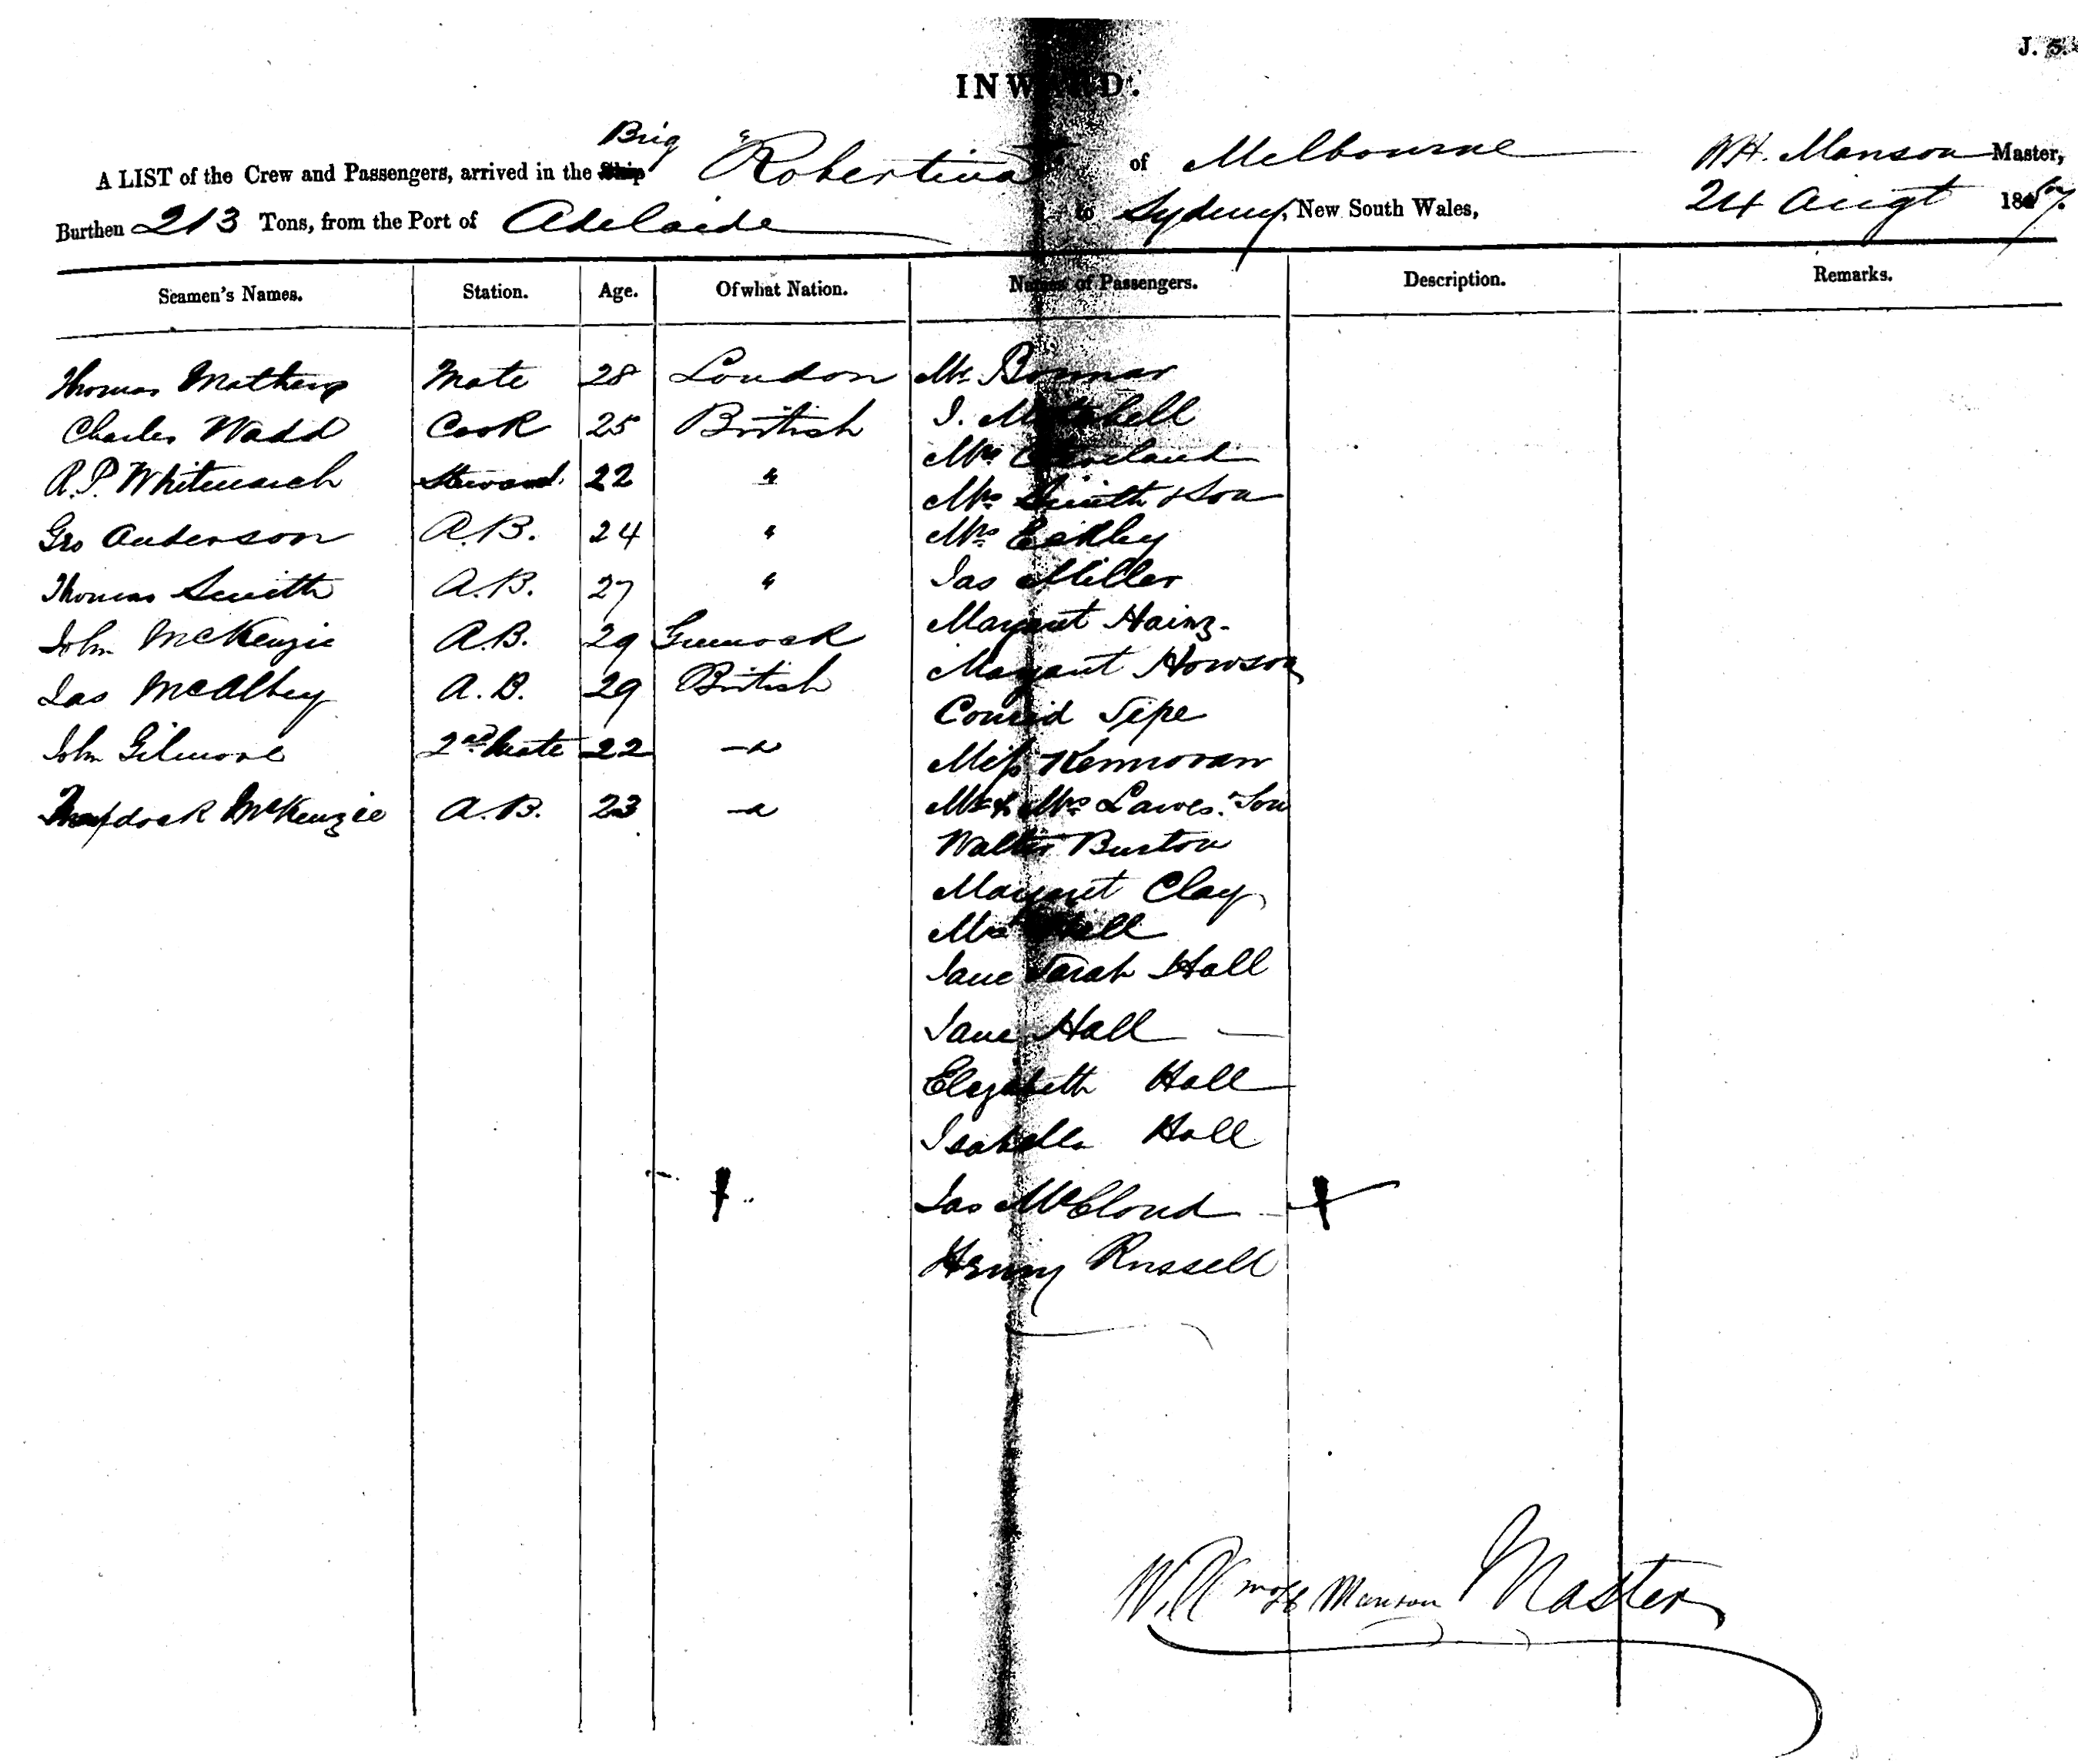 J. 5.
INWARD.
Brig
A LIST of the Crew and Passengers, arrived in the Ship "Robertina" of Melbourne W.H. Manson Master,
Burthen 213 Tons, from the Port of Adelaide to Sydney, New South Wales, 24 Augt 1857.
Seamen's Names. Station. Age. Of what Nation. Names of Passengers. Description. Remarks.
Thomas Mathews Mate 28 London Mr
Charles Wadd Cook 25 British J. Mitchell
R.P. Whitmarch Steward 22 " Mrs
Mrs Smith & Son
Geo Anderson A.B. 24 " Mrs
Thomas Smith A.B. 27 " Jas Miller
John McKenzie A.B. 29 Greenock Margaret Hainz
Jas McAlbey A.B. 29 British Margaret Howson
Conrad Sepe
John Gilmore 2nd Mate 22 -"- Miss Kennovan
McKenzie A.B. 23 -"- Mr & Mrs Lawes. Son
Walter Burton
Margaret Clay
Mrs Hall
Jane Sarah Hall
Jane Hall
Elizabeth Hall
Isabella Hall
Jas McCloud
Henry Russell
Manson Master